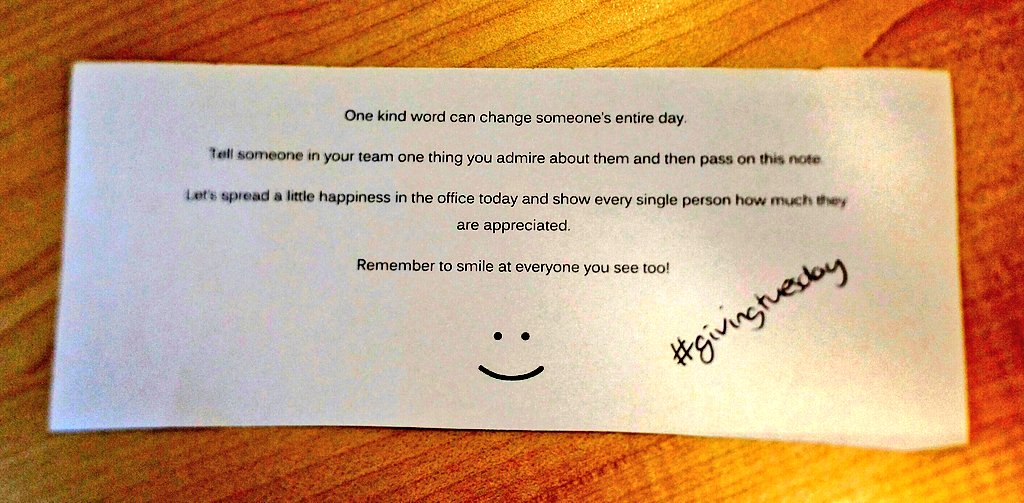 One kind word can change someone's entire day.
Tell someone in your team one thing you admire about them and then pass on this note.
Let's spread a little happiness in the office today and show every single person how much they
are appreciated.
Remember to smile at everyone you see too!
#givingtuesday